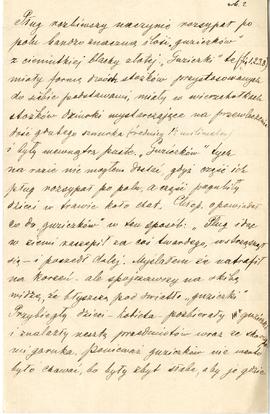 № 2
Pług rozbiwszy naczynie rozsypał po
polu bardzo znaczną ilość „guziczków"
z cieniutkiej blachy złotej „Guziczki" te
miały formę dwóch stożków przystosowanych
do siebie podstawami, miały w wierzchołkach
stożków dziurki wystarczające na przewleczenie
dość grubego sznurka
i były wewnątrz puste. „Guziczków" tych
na razie nie mogłem dostać, gdyż część ich
pług rozsypał po polu, a część pogubiły
dzieci w trawie koło chat. Chłop, opowiadał
co do „guziczków" w ten sposób: „Pług idąc
w ziemi zaczepił za coś twardego,
się – i poszedł dalej. Myślałem że natrafił
na korzeń – ale spojrzawszy na skibę
widzę, że błyszczą pod światło „guziczki"
Przybiegły dzieci – kobieta pozbierały guziczki
i znalazły resztę przedmiotów wraz ze
garnka. Ponieważ guziczków nie warto
było chować, bo były zbyt słabe, aby je gdzie